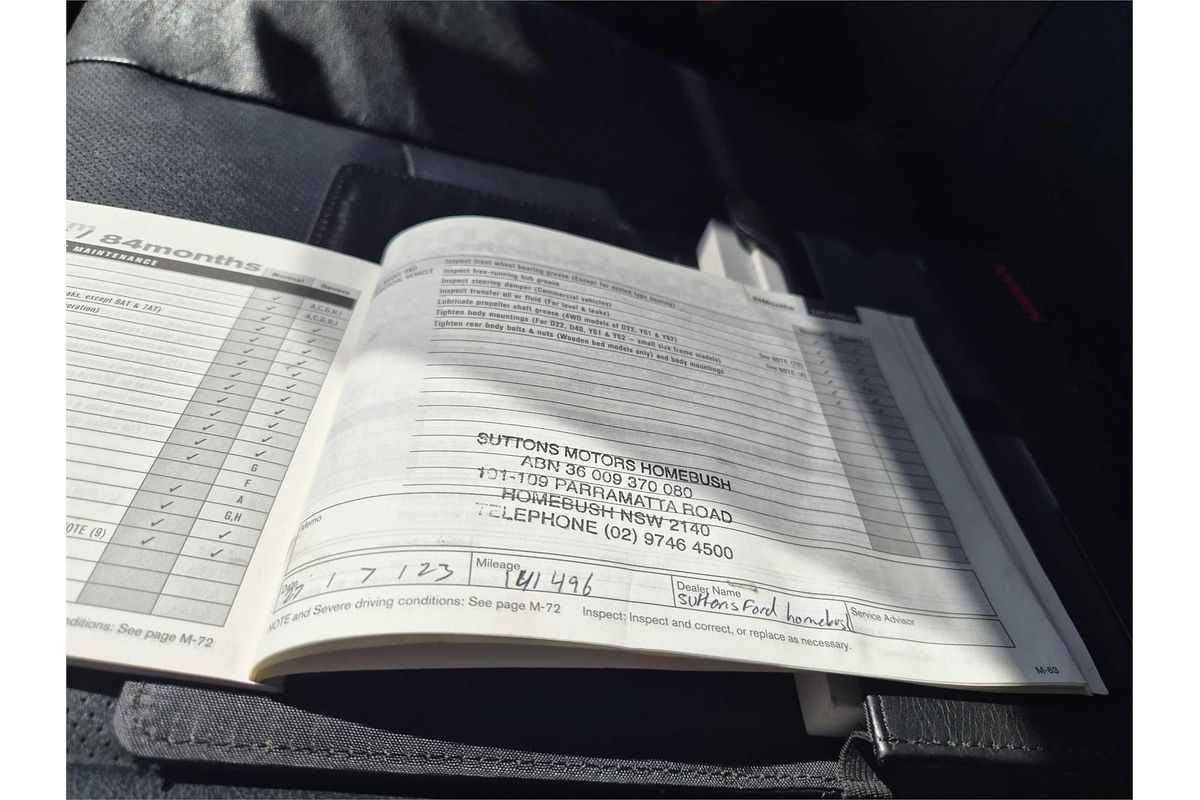 84months
MAINTENANCE
Normal Severe
A,C,G,H,I
A,C,G,H,I
aks, except 6AT & 7AT)
eration)
G
F
A
G,H
OTE (9)
nditions: See page M-72
Inspect front wheel bearing grease (Except for sealed type bearing)
Inspect free-running hub grease
Inspect steering damper (Commercial vehicles)
Inspect transfer oil or fluid (For level & leaks)
Lubricate propeller shaft grease (4WD models of D22, Y61 & Y62)
Tighten body mountings (For D22, D40, Y61 & Y62 – small size frame models) See NOTE (15)
Tighten rear body bolts & nuts (Wooden bed models only) and body mountings See NOTE (9)
84Months
SUTTONS MOTORS HOMEBUSH
ABN 36 009 370 080
101-109 PARRAMATTA ROAD
HOMEBUSH NSW 2140
TELEPHONE (02) 9746 4500
Memo
Date 27 / 7 / 23
Mileage 141496
Dealer Name Suttons Ford homebush
Service Advisor
NOTE and Severe driving conditions: See page M-72 Inspect: Inspect and correct, or replace as necessary.
M-63